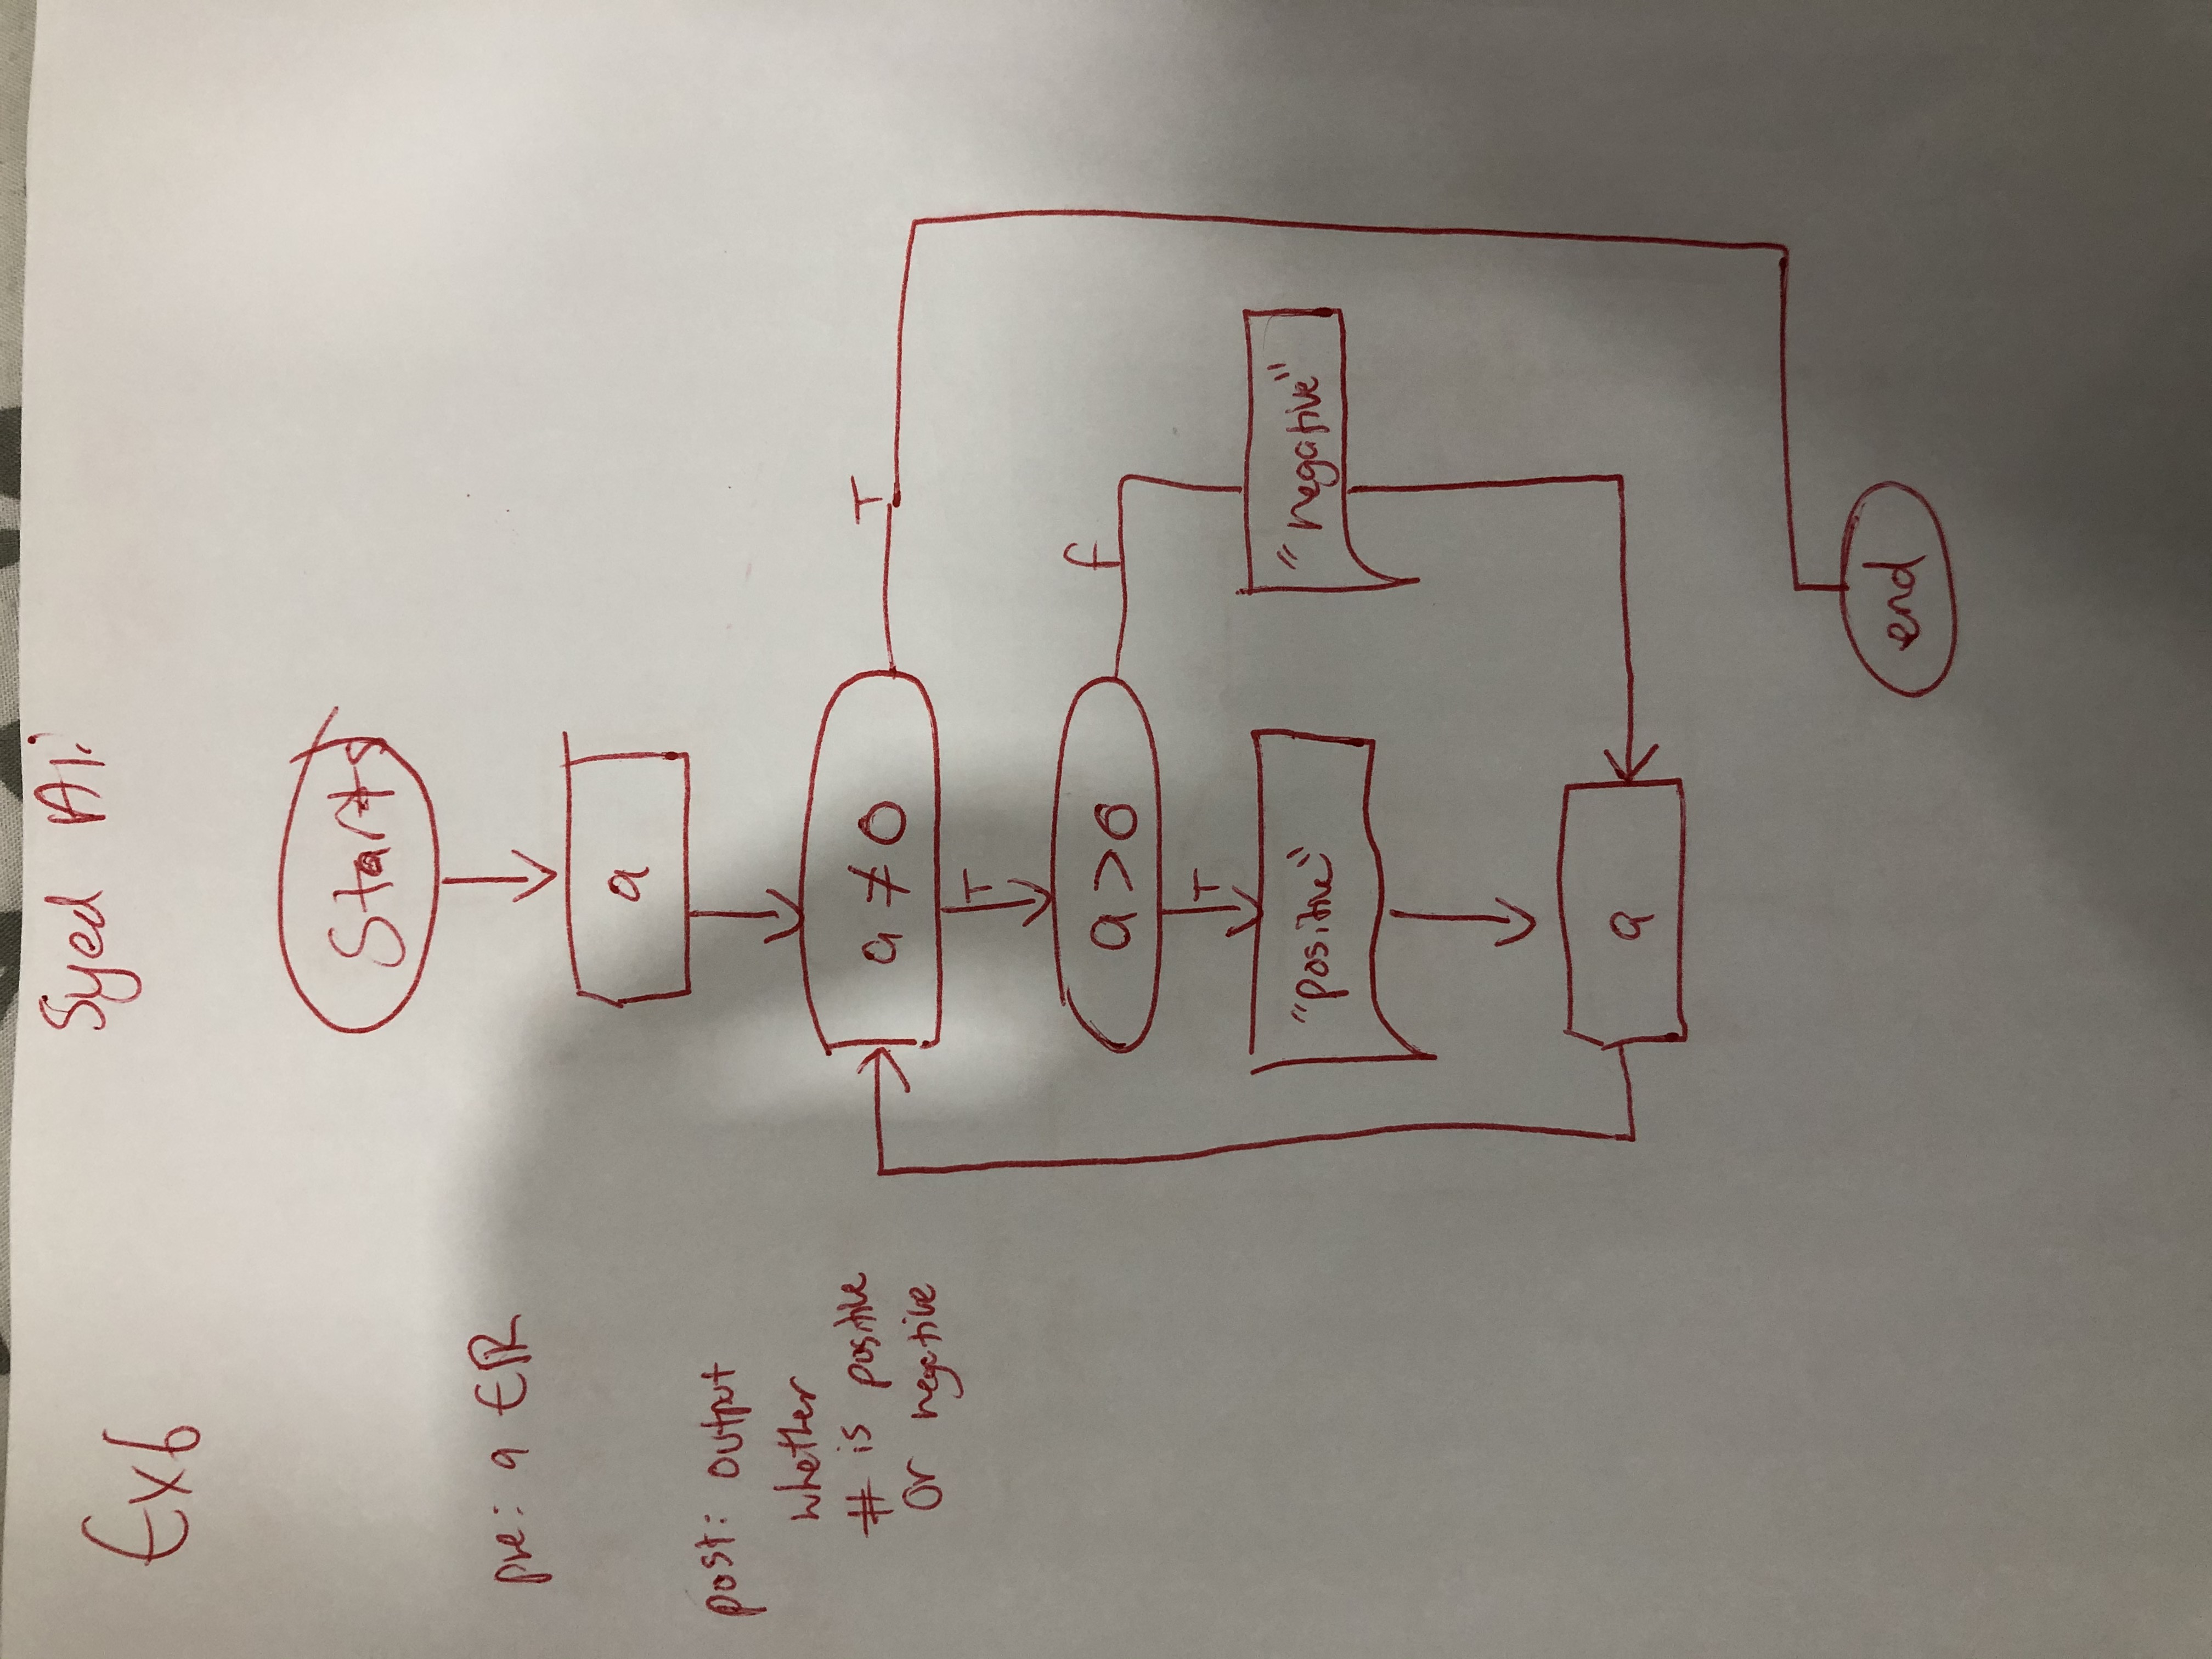 Syed Ali
Ex6
Start
pre: a ∈ ℝ
a
post: output
whether
# is positive
or negative
a ≠ 0
T
T
a > 0
F
T
"positive"
"negative"
a
end